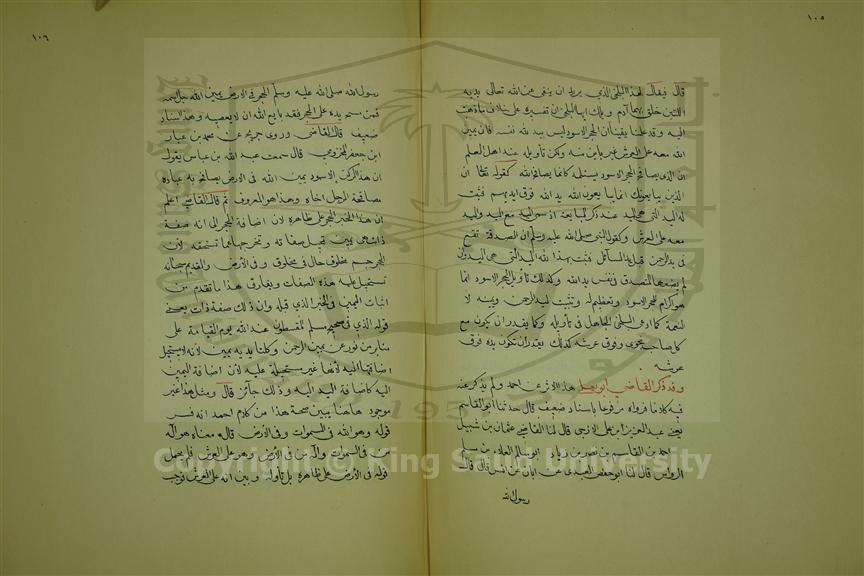 ١٠٥
قال فيقال لهذا البلخي الذي يريد ان ينفي عن الله تعالى يديه
اللتين خلق بهما آدم ويلك ايها البلخي ان تفسيره على خلاف ما ذهبت
اليه وقد علمنا يقينا ان الحجر الاسود ليس بيد الله نفسه فان يمين
الله معه على العرش غير باين منه ولكن تأويله عند اهل العلم
ان الذي يصافح الحجر الاسود ويستلمه كانما يصافح الله كقوله تعالى ان
الذين يبايعونك انما يبايعون الله يد الله فوق ايديهم فثبت
له اليد التي هي اليد عند ذكر المبايعة اذ سمى اليد مع اليد واليد
معه على العرش وكقول النبي صلى الله عليه وسلم ان الصدقة تقع
في يد الرحمن قبل يد السائل فثبت بهذا الله اليد التي هي اليد وان
لم يضعها المتصدق في نفس يد الله وكذلك تأويل الحجر الاسود انما
هو اكرام للحجر الاسود وتعظيم له وتثبيت ليد الرحمن ويمينه لا
النعمة كما ادعى البلخي الجاهل في تأويله وكما يقدر ان يكون مع
كل صاحب نجوى وفوق عرشه كذلك يقدر ان تكون يده فوق
عرشه .
وقد ذكر القاضي ابو يعلى هذا الاثر عن احمد ولم يذكر عنه
فيه كلاما فرواه مرفوعا باسناد ضعيف قال حدثنا ابو القاسم
يعني عبد العزيز ابن علي الازجي قال لنا القاضي عثمان بن شبيل
احمد بن القاسم بن نصر بن زياد ابو سالم العلاء بن مسلم
الرواس قال لنا ابو حفص العبدي عن ابان عن انس قال قال
رسول الله
١٠٦
رسول الله صلى الله عليه وسلم الحجر في الارض يمين الله جل اسمه
فمن مسح يده على الحجر فقد بايع الله ان لا يعصيه وهذا اسناد
ضعيف قال القاضي وروى جريج عن محمد بن عباد
ابن جعفر المخزومي قال سمعت عبد الله بن عباس يقول
ان هذا الركن الاسود يمين الله في الارض يصافح به عباده
مصافحة الرجل اخاه وهذا هو المعروف ثم قال القاضي اعلم
ان هذا الخبر على ظاهره لان اضافة الحجر الى انه صفة
ذات هي يمين تحيل صفاته وتخرجها عما تستحقه لان
الحجر جسم مخلوق حال في مخلوق وفي الارض والقديم سبحانه
تستحيل عليه هذه الصفات ويفارق هذا ما تقدم من
اثبات اليمين والخبر الذي قبله وان ذلك صفة ذات يعني
قوله الذي في صحيح مسلم المقسطون عند الله يوم القيامة على
منابر من نور عن يمين الرحمن وكلتا يديه يمين لانه لا يستحيل
اضافتها اليه لانها غير مستحيلة عليه لان اضافة اليمين
اليه كاضافة اليد اليه وذلك جائز قال ومثل هذا غير
موجود هاهنا يبين صحة هذا من كلام احمد انه فسر
قوله وهو الله في السموات وفي الارض قال معناه هو اله
من في السموات واله من في الارض وهو على العرش فلم يحمل
قوله في الارض على ظاهره بل تأوله وبين انه على العرش فوجب
Copyright © King Saud University
1957